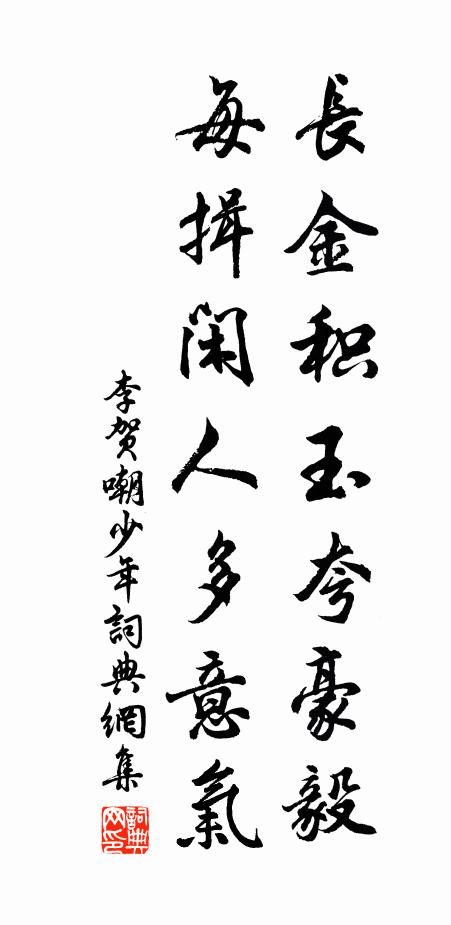 長金积玉夸豪毅
每揖閑人多意氣
李贺嘲少年詞典網集
詞典网印